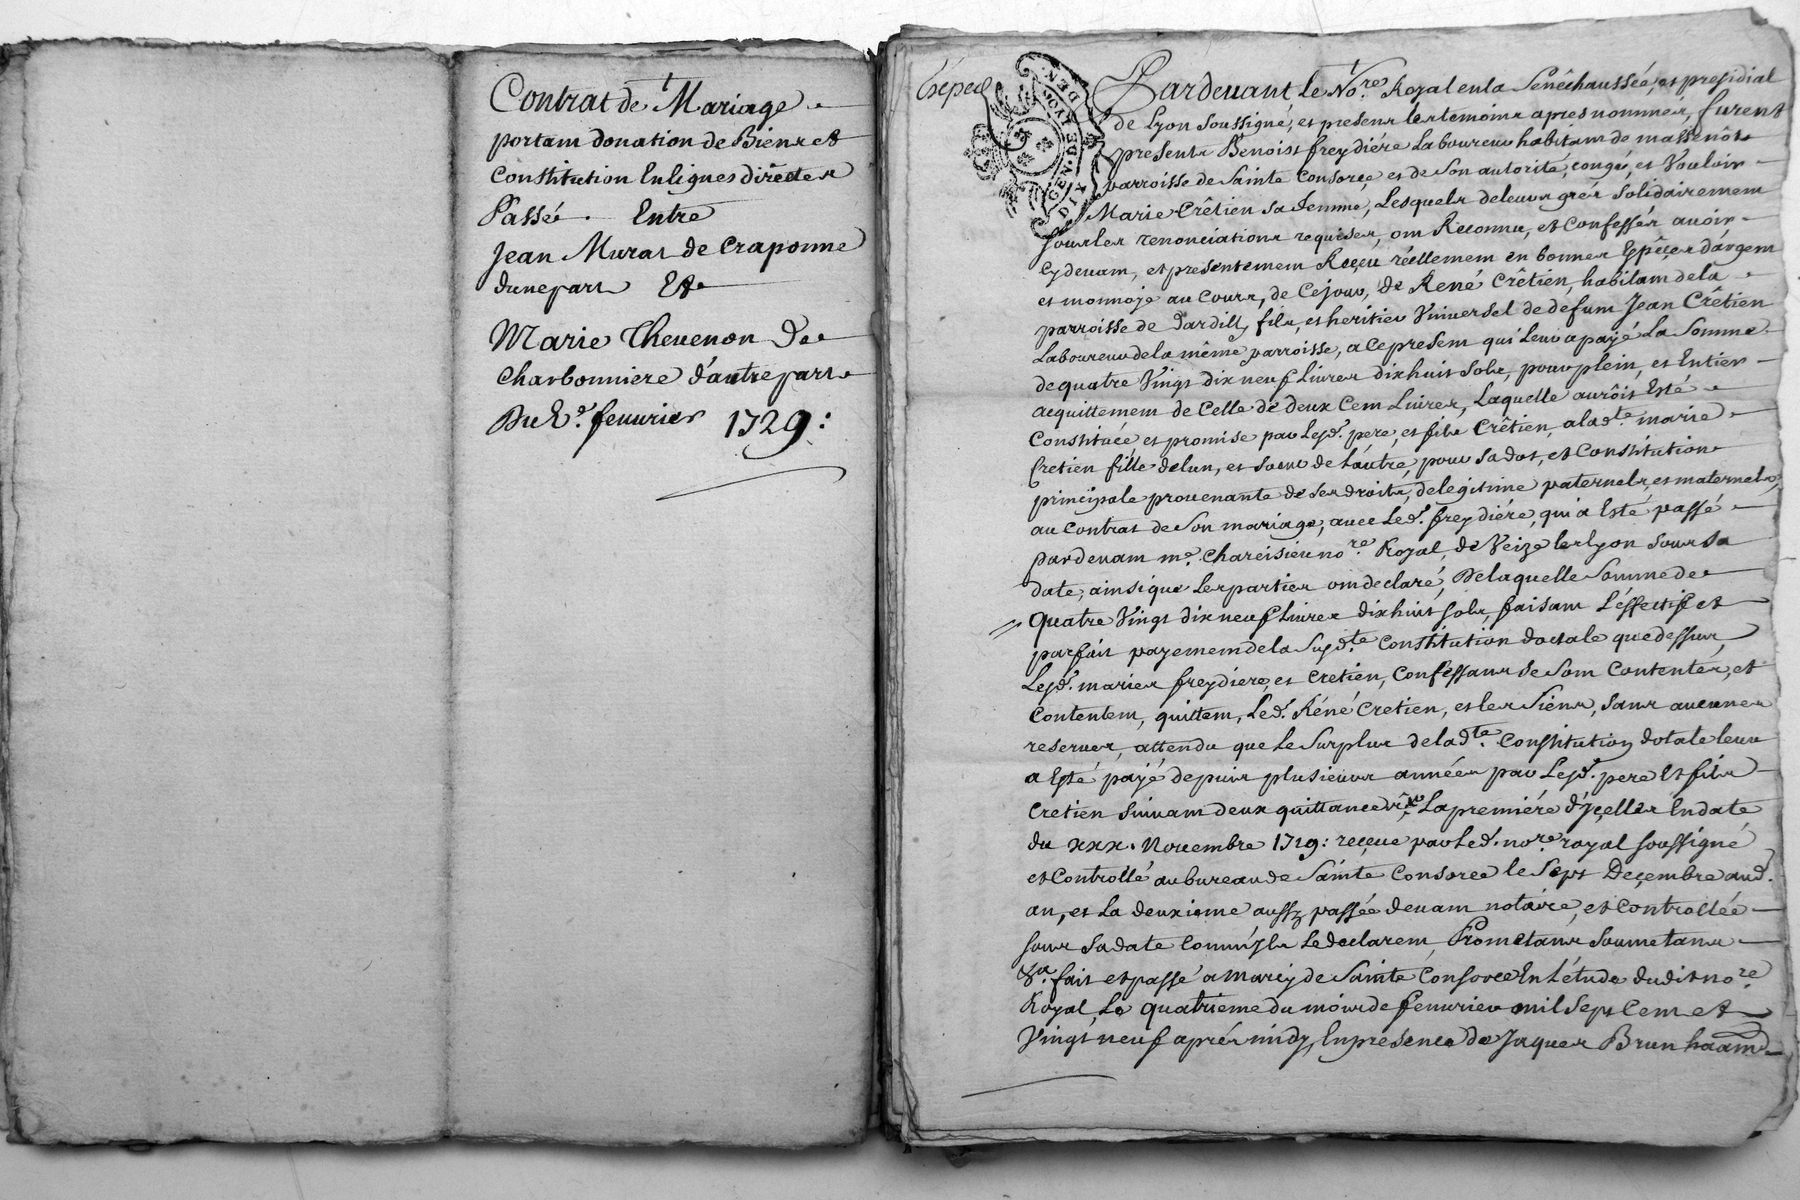 Contrat de Mariage
portant donation de Biens et
Constitution En lignes diréctes
Passé . Entre
Jean Murat de Craponne
d'une part Et
Marie Thevenon De
Charbonniere d'autre part
Du 2e. feuurier 1729 :
Expedé
GEN · DE LYON · DEN
DIX
Pardeuant le No.re Royal en la Senéchaussée, et presidial
de Lyon soussigné, et presens les temoins apres nommés, furent
presents Benoist freydiére Laboureur habitant de massenôt
parroisse de Sainte Consorçe et de Son autorité, congé, et Vouloir
Marie Crêtien sa femme, Lesquels de leurs grés solidairement
sous les renonciations requises, ont Reconnu, et Confessés auoir
Cy deuant, et presentement Reçeu réellement en bonnes Espêces d'argent
et monnoye au Cours, de Ce jour, de René Crêtien, habitant de la
parroisse de dardilly fils, et heritier Vniuersel de defunt Jean Crêtien
Laboureur de la même parroisse, a Ce present qui Leur a payé La Somme
de quatre Vingt dix neuf Liures dix huit Sols, pour plein, et Entier
acquittement de Celle de deux Cent Liures, Laquelle aurôit Esté
Constituée et promise par Lesd. pere, et fils Crêtien, a lad.te marie
Cretien fille de lun, et sœur de l'autre, pour sa dot, et Constitution
principale prouenante de ses droits, de legitime paternels, et maternels,
au Contrat de Son mariage, auec Led. freydiére, qui a Esté passé
pardeuant me. Chareisieu no.re Royal, de Veize les Lyon sous sa
date, ainsi que Les parties ont declaré, De laquelle Somme de
quatre Vingt dix neuf Liures dix huit sols, faisant l'éffectif et
parfait payement de la Susd.te Constitution doctale que dessus,
Lesd. maries freydiére, et Cretien, Confessant se Sont Contentés, et
Contentent, quittent, Led. Réné Cretien, et les Siens, sans aucunes
reserues, attendu que le Surplus de lad.te Constitution dotale leur
a Esté payé depuis plusieurs années par Lesd. pere Et fils
Cretien Suiuant deux quittances La premiére d'yçelles En date
du xxx. Nouembre 1719 : reçeue par Led. no.re royal soussigné
et Controllé au bureau de Sainte Consorce le Sept Deçembre aud.
an, et La deuxieme aussy passée deuant notaire, et Controllée
sous sa date Comm'yls Le declarent, Promettans soumettans
&a. fait et passé a Marcy de Sainte Consorce En l'étude dudit no.re
Royal, Le quatrieme du mois de feuurier mil Sept Cent et
Vingt neuf aprés midy, En presence de Jaques Brun habitant